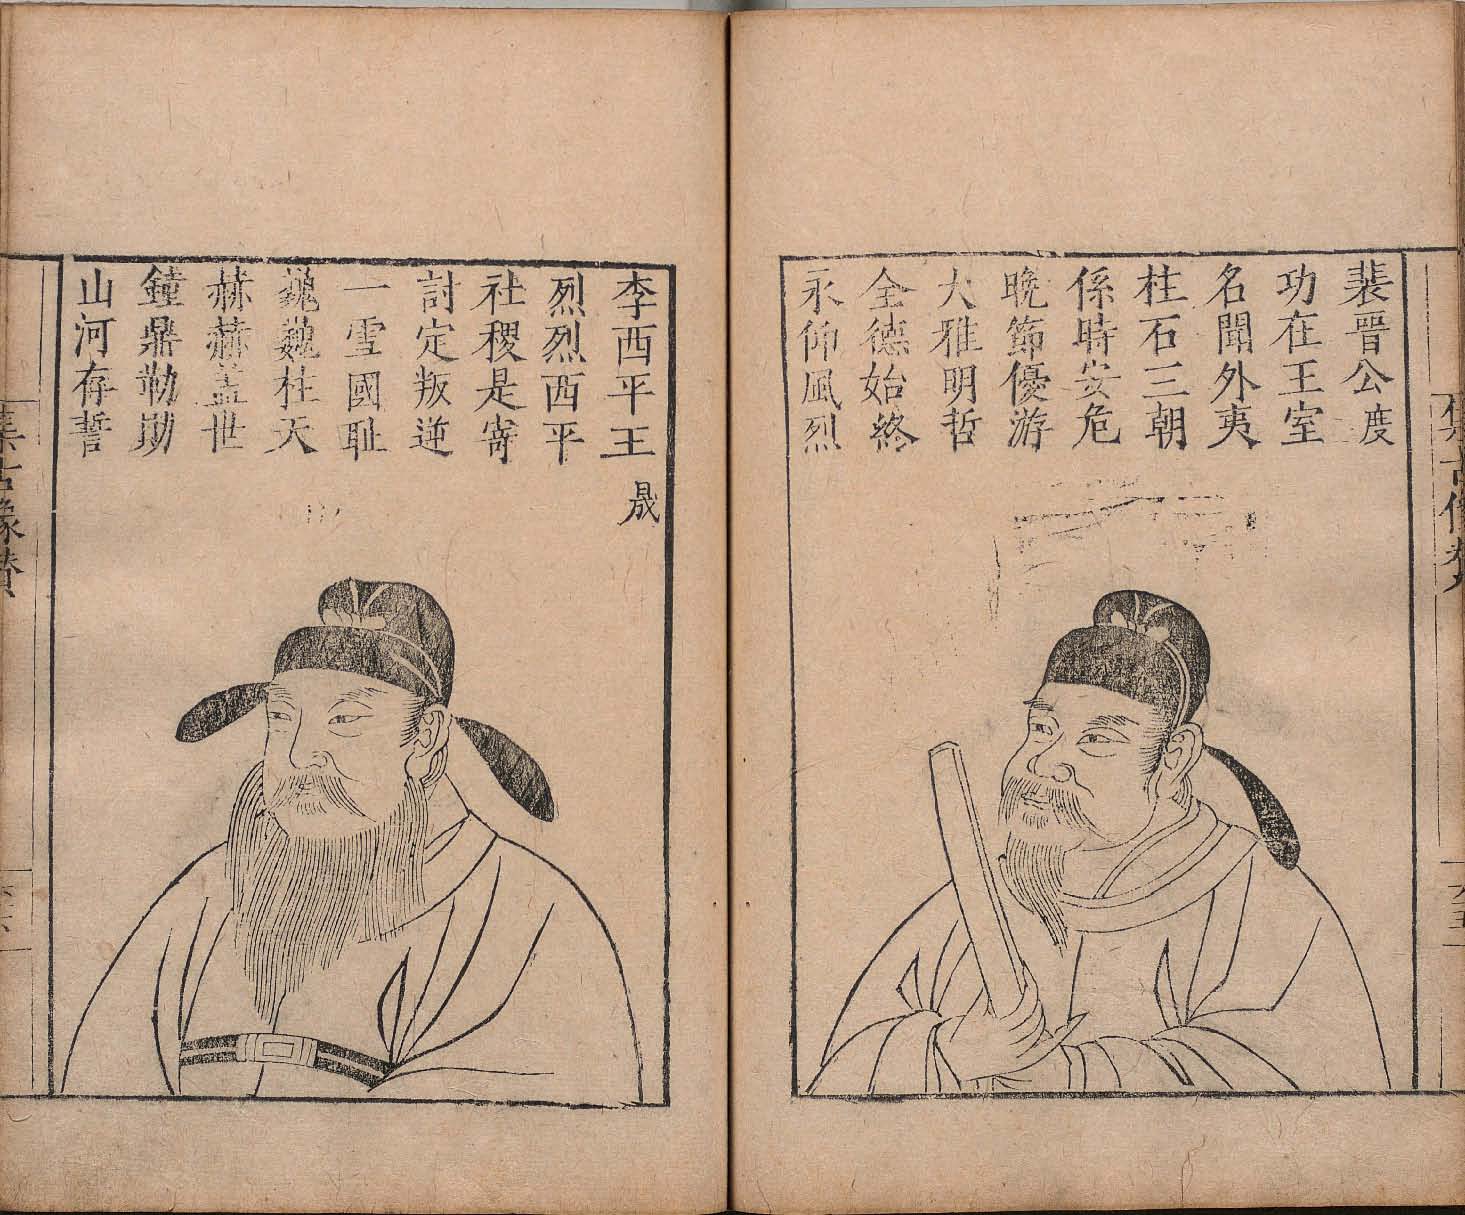 裴晉公度
功在王室
名聞外夷
柱石三朝
係時安危
晚節優游
大雅明哲
全德始終
永仰風烈
李西平王晟
烈烈西平
社稷是寄
討定叛逆
一雪國耻
巍巍柱天
赫赫盖世
鐘鼎勒勛
山河存誓
集古像贊
六十五
集古像贊
六十六